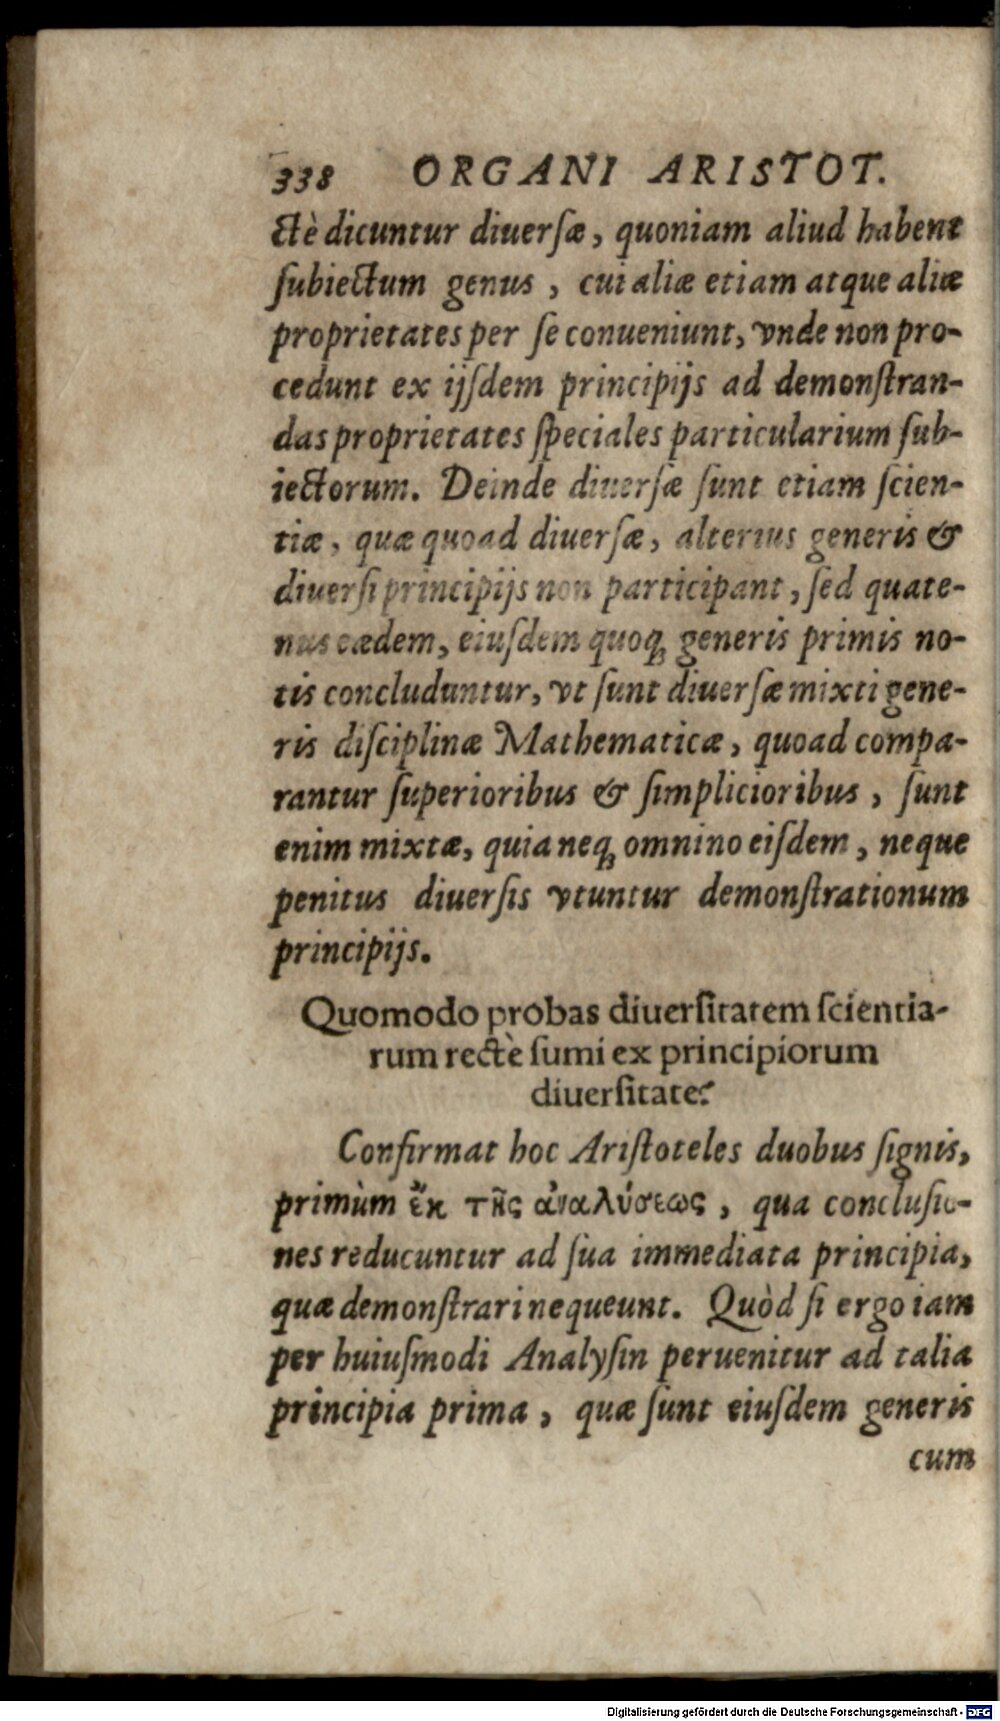 338 ORGANI ARISTOT.
ctè dicuntur diuerſæ, quoniam aliud habent
ſubiectum genus, cui aliæ etiam atque aliæ
proprietates per ſe conueniunt, vnde non pro-
cedunt ex ijſdem principijs ad demonſtran-
das proprietates ſpeciales particularium ſub-
iectorum. Deinde diuerſæ ſunt etiam ſcien-
tiæ, quæ quoad diuerſæ, alterius generis &
diuerſi principijs non participant, ſed quate-
nus eædem, eiuſdem quoq; generis primis no-
tis concluduntur, vt ſunt diuerſæ mixti gene-
ris diſciplinæ Mathematicæ, quoad compa-
rantur ſuperioribus & ſimplicioribus, ſunt
enim mixtæ, quia neq; omnino eiſdem, neque
penitus diuerſis vtuntur demonſtrationum
principijs.
Quomodo probas diuerſitatem ſcientia-
rum rectè ſumi ex principiorum
diuerſitate?
Confirmat hoc Ariſtoteles duobus ſignis,
primùm ἔκ τῆς ἀναλύσεως, qua concluſio-
nes reducuntur ad ſua immediata principia,
quæ demonſtrari nequeunt. Quòd ſi ergo iam
per huiuſmodi Analyſin peruenitur ad talia
principia prima, quæ ſunt eiuſdem generis
cum
Digitalisierung gefördert durch die Deutsche Forschungsgemeinschaft - DFG